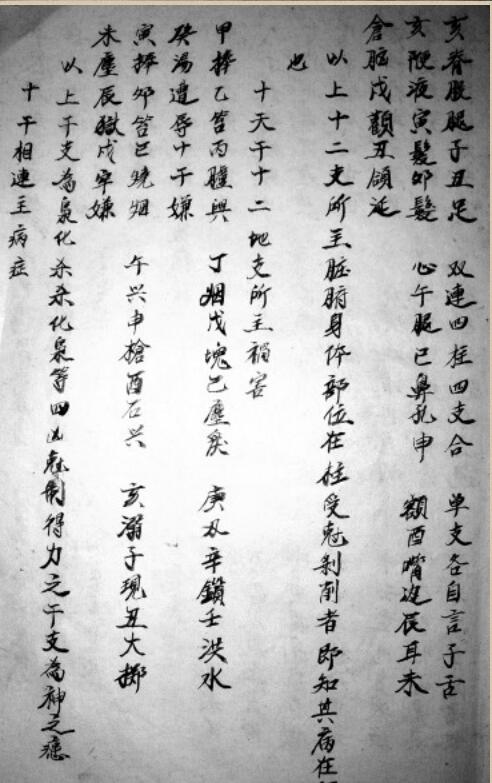 亥脊股腿子丑足 双連四柱四支合 单支各自言子舌
亥 液寅髮卯髮 心午眼巳鼻孔申 額酉嘴 辰耳未
倉脑戌顴丑頜延
以上十二支所主脏腑身体部位在柱受尅剥削者即知其病在
也
十天干十二地支所主禍害
甲摔乙笞丙瞳與 丁烟戊塊己塵矣 庚刄辛鎖壬洪水
癸湯遭辱十干嫌
寅摔卯笞巳燒烟 午兴申槍酉石兴 亥溺子現丑大擲
未塵辰獄戌牢嫌
以上干支為梟化杀杀化梟等四凶尅制得力之干支為神之
十干相連主病症